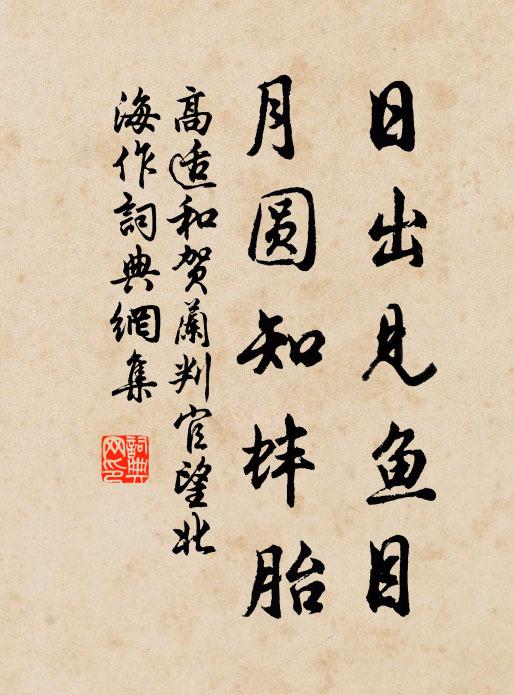 日出见鱼目
月圆知蚌胎
高适和贺兰判官望北
海作词典網集
詞典
网印